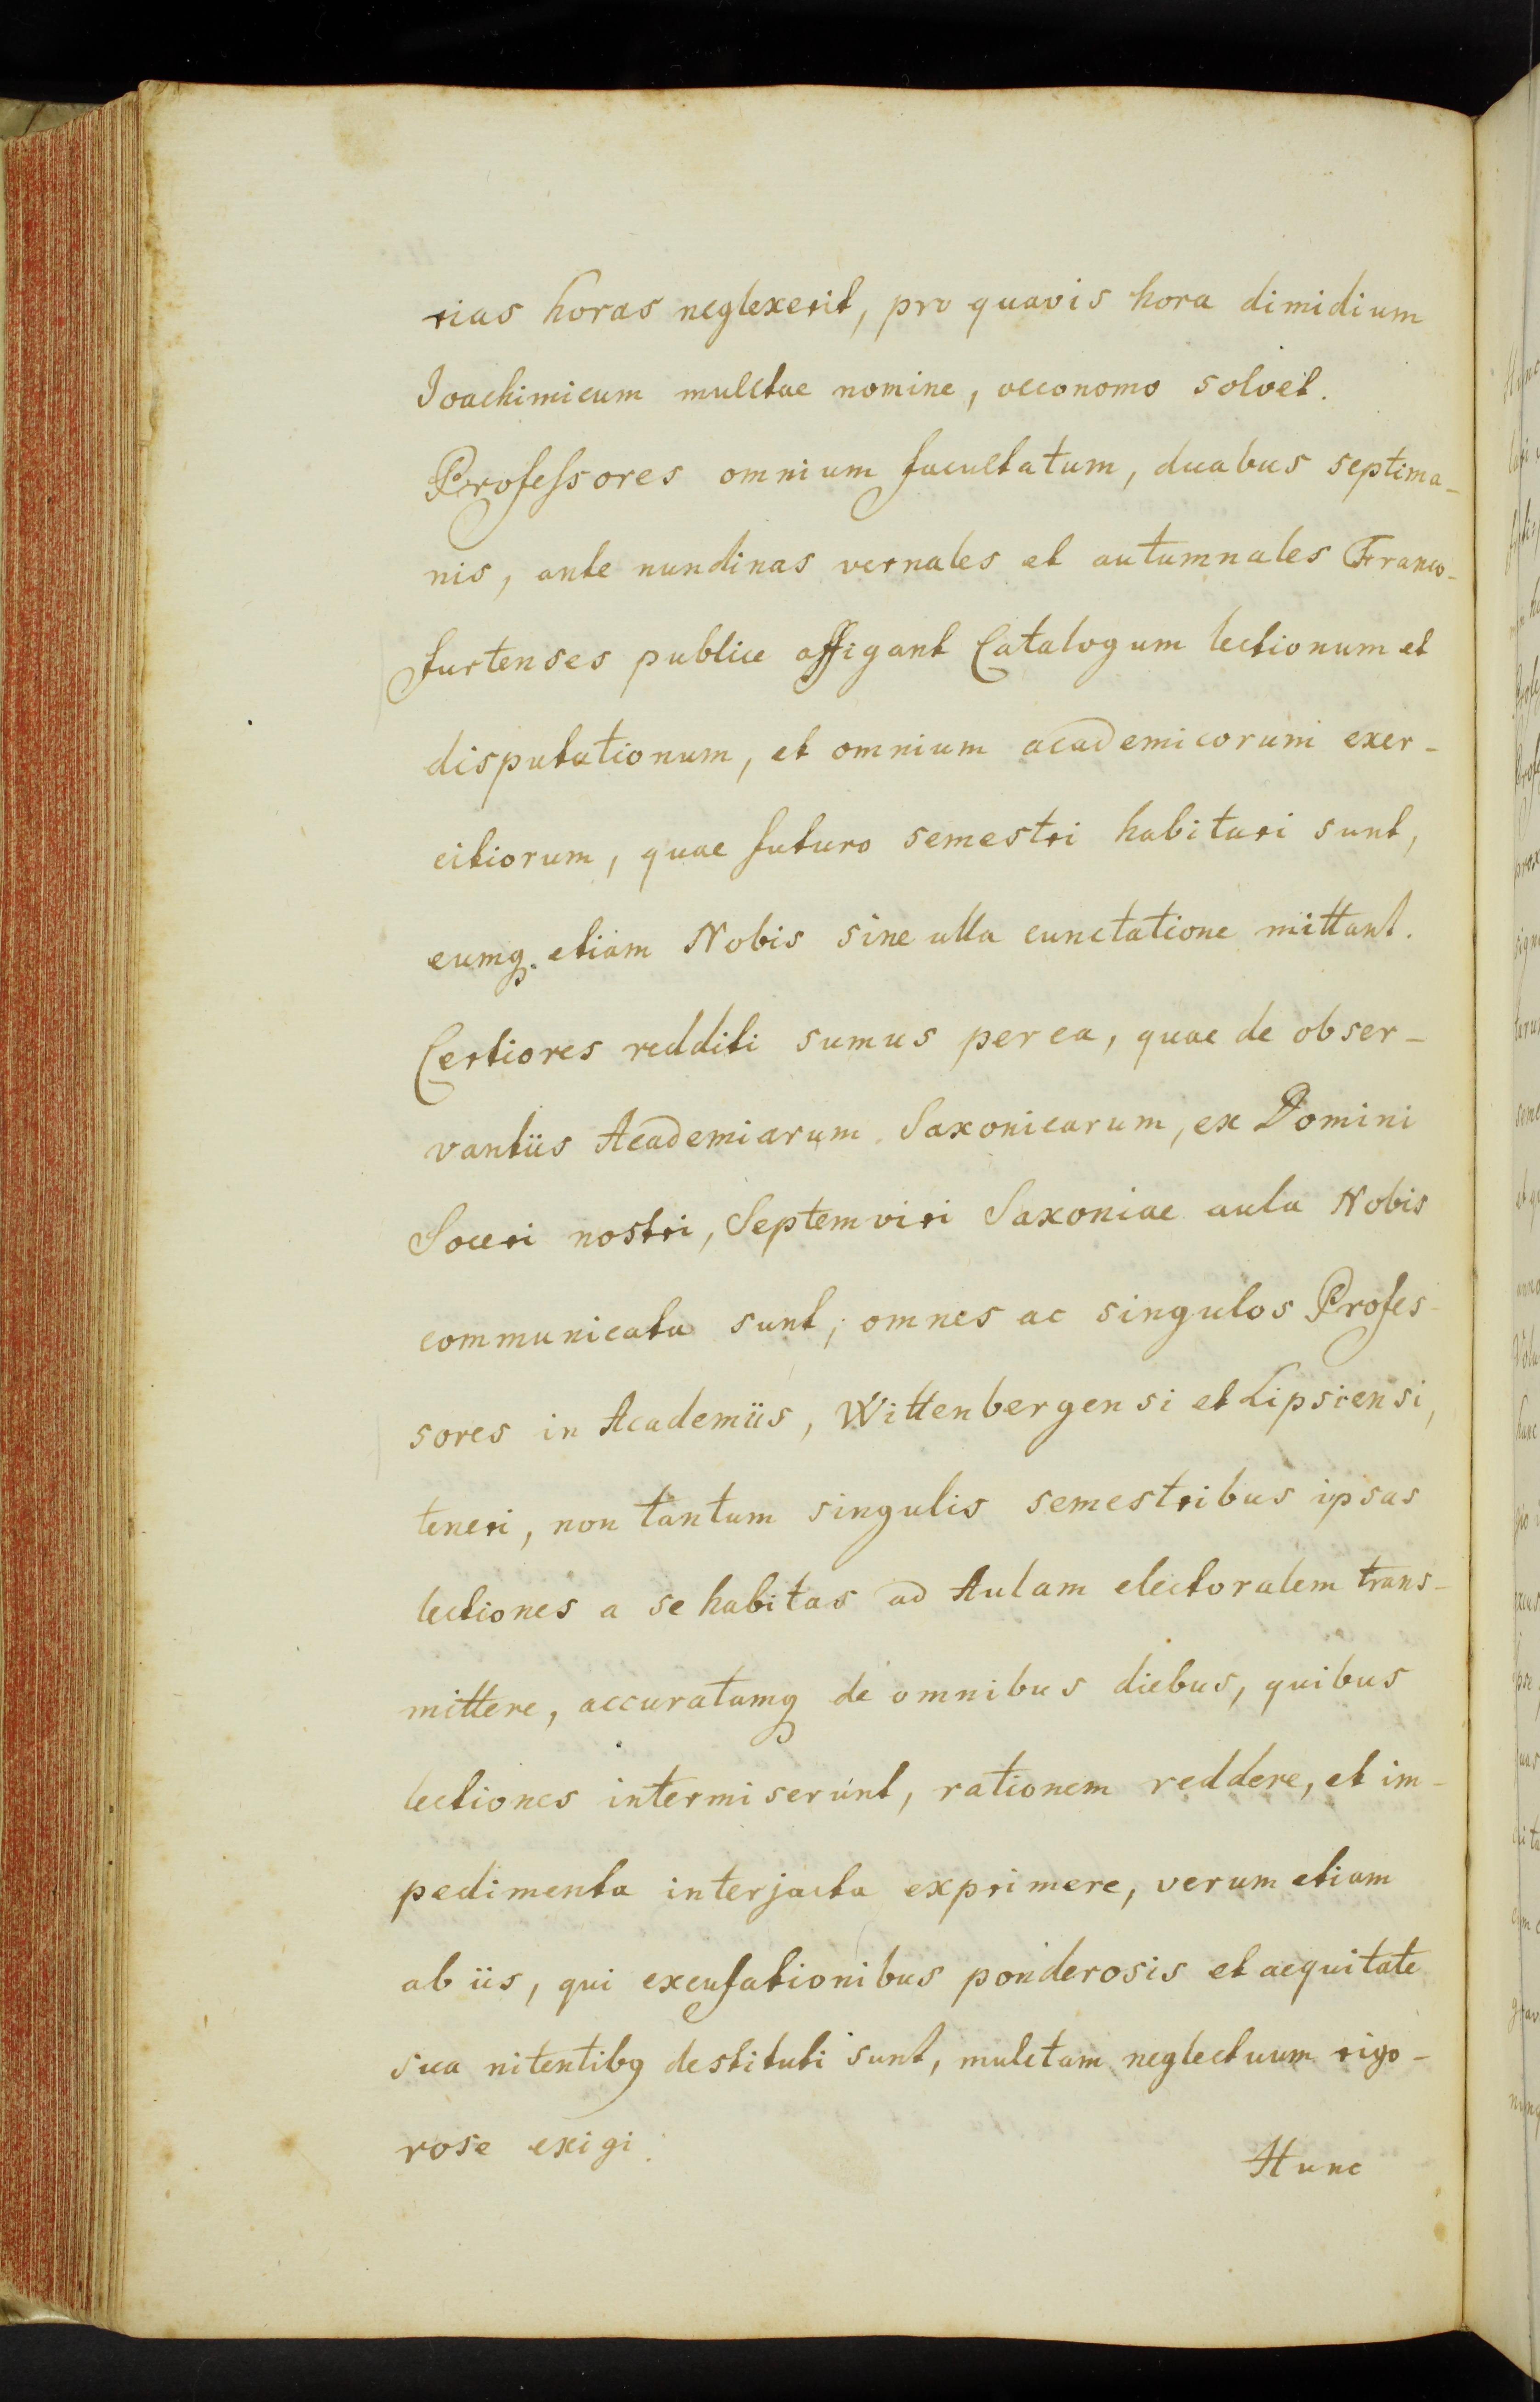 rias horas neglexerit, pro quavis hora dimidium
Joachimicum mulctae nomine, oeconomo solvet.
Professores omnium facultatum, duabus septima-
nis, ante nundinas vernales et autumnales Franco-
furtenses publice affigant Catalogum lectionum et
disputationum, et omnium academicorum exer-
citiorum, quae futuro semestri habituri sunt,
eumq. etiam Nobis sine ulla cunctatione mittant.
Certiores redditi sumus per ea, quae de obser-
vantiis Academiarum Saxonicarum, ex Domini
Soceri nostri, Septemviri Saxoniae aula Nobis
communicata sunt, omnes ac singulos Profes-
sores in Academiis, Wittenbergensi et Lipsiensi,
teneri, non tantum singulis semestribus ipsas
lectiones a se habitas ad Aulam electoralem trans-
mittere, accuratamq de omnibus diebus, quibus
lectiones intermiserunt, rationem reddere, et im-
pedimenta interjacta exprimere, verum etiam
ab iis, qui excusationibus ponderosis et aequitate
sua nitentibq destituti sunt, mulctam neglectuum rigo-
rose exigi.
Hunc